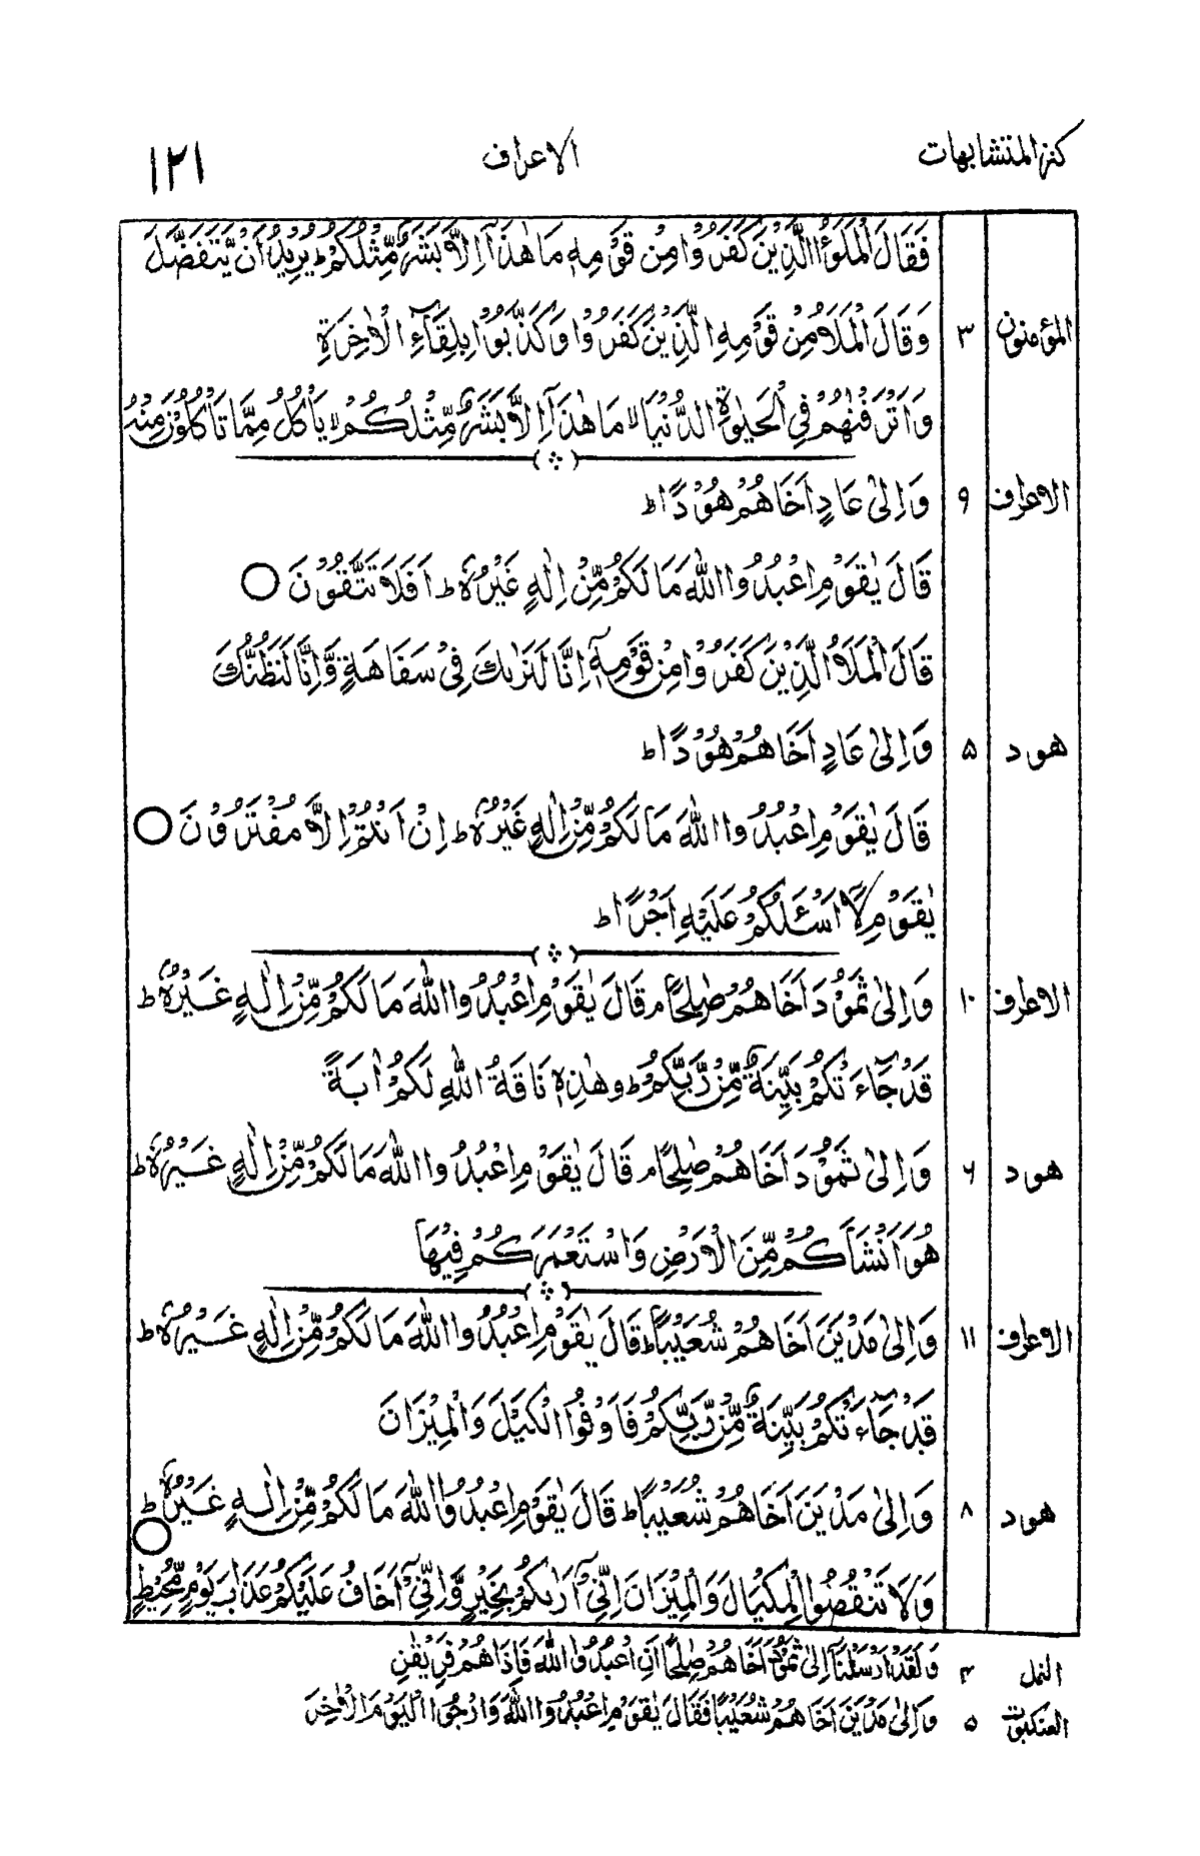 كنز المتشابهات الاعراف ۱۲۱
فَقَالَ الْمَلَؤُا الَّذِيْنَ كَفَرُوْا مِنْ قَوْمِهٖ مَا هٰذَآ اِلَّا بَشَرٌ مِّثْلُكُمْ ط يُرِيْدُ اَنْ يَّتَفَضَّلَ
المؤمنون ۳ وَقَالَ الْمَلَاُ مِنْ قَوْمِهِ الَّذِيْنَ كَفَرُوْا وَكَذَّبُوْا بِلِقَآءِ الْاٰخِرَةِ
وَاَتْرَفْنٰهُمْ فِي الْحَيٰوةِ الدُّنْيَا لا مَا هٰذَآ اِلَّا بَشَرٌ مِّثْلُكُمْ لا يَاْكُلُ مِمَّا تَاْكُلُوْنَ مِنْهُ
الاعراف ۹ وَاِلٰى عَادٍ اَخَاهُمْ هُوْدًا ط
قَالَ يٰقَوْمِ اعْبُدُوا اللّٰهَ مَا لَكُمْ مِّنْ اِلٰهٍ غَيْرُهٗ ط اَفَلَا تَتَّقُوْنَ ○
قَالَ الْمَلَاُ الَّذِيْنَ كَفَرُوْا مِنْ قَوْمِهٖٓ اِنَّا لَنَرٰىكَ فِيْ سَفَاهَةٍ وَّاِنَّا لَنَظُنُّكَ
هود ۵ وَاِلٰى عَادٍ اَخَاهُمْ هُوْدًا ط
قَالَ يٰقَوْمِ اعْبُدُوا اللّٰهَ مَا لَكُمْ مِّنْ اِلٰهٍ غَيْرُهٗ ط اِنْ اَنْتُمْ اِلَّا مُفْتَرُوْنَ ○
يٰقَوْمِ لَآ اَسْئَلُكُمْ عَلَيْهِ اَجْرًا ط
الاعراف ۱۰ وَاِلٰى ثَمُوْدَ اَخَاهُمْ صٰلِحًا م قَالَ يٰقَوْمِ اعْبُدُوا اللّٰهَ مَا لَكُمْ مِّنْ اِلٰهٍ غَيْرُهٗ ط
قَدْ جَآءَتْكُمْ بَيِّنَةٌ مِّنْ رَّبِّكُمْ ط وهٰذِهٖ نَاقَةُ اللّٰهِ لَكُمْ اٰيَةً
هود ۶ وَاِلٰى ثَمُوْدَ اَخَاهُمْ صٰلِحًا م قَالَ يٰقَوْمِ اعْبُدُوا اللّٰهَ مَا لَكُمْ مِّنْ اِلٰهٍ غَيْرُهٗ ط
هُوَ اَنْشَاَكُمْ مِّنَ الْاَرْضِ وَاسْتَعْمَرَكُمْ فِيْهَا
الاعراف ۱۱ وَاِلٰى مَدْيَنَ اَخَاهُمْ شُعَيْبًا ط قَالَ يٰقَوْمِ اعْبُدُوا اللّٰهَ مَا لَكُمْ مِّنْ اِلٰهٍ غَيْرُهٗ ط
قَدْ جَآءَتْكُمْ بَيِّنَةٌ مِّنْ رَّبِّكُمْ فَاَوْفُوا الْكَيْلَ وَالْمِيْزَانَ
هود ۸ وَاِلٰى مَدْيَنَ اَخَاهُمْ شُعَيْبًا ط قَالَ يٰقَوْمِ اعْبُدُوا اللّٰهَ مَا لَكُمْ مِّنْ اِلٰهٍ غَيْرُهٗ ط ○
وَلَا تَنْقُصُوا الْمِكْيَالَ وَالْمِيْزَانَ اِنِّيْٓ اَرٰىكُمْ بِخَيْرٍ وَّاِنِّيْٓ اَخَافُ عَلَيْكُمْ عَذَابَ يَوْمٍ مُّحِيْطٍ
النمل ۴ وَلَقَدْ اَرْسَلْنَآ اِلٰى ثَمُوْدَ اَخَاهُمْ صٰلِحًا اَنِ اعْبُدُوا اللّٰهَ فَاِذَا هُمْ فَرِيْقٰنِ
العنكبوت ۵ وَاِلٰى مَدْيَنَ اَخَاهُمْ شُعَيْبًا فَقَالَ يٰقَوْمِ اعْبُدُوا اللّٰهَ وَارْجُوا الْيَوْمَ الْاٰخِرَ